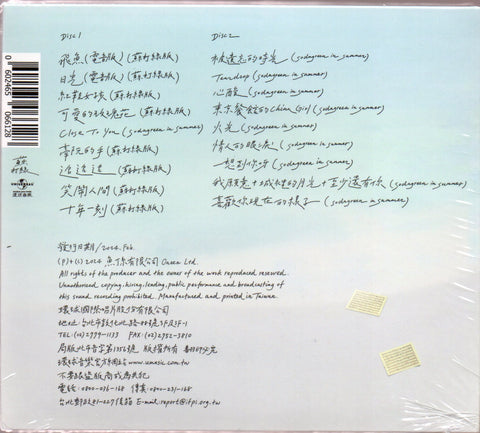 Disc 1
飛魚(電音版)(蘇打綠版)
日光(電音版)(蘇打綠版)
紅鞋女孩(蘇打綠版)
可愛的玫瑰花(蘇打綠版)
Close To You (sodagreen in summer)
帝阪的手(蘇打綠版)
(蘇打綠版)
笑鬧人間(蘇打綠版)
十年一刻(蘇打綠版)
Disc 2
被遺忘的時光 (sodagreen in summer)
Teardrop (sodagreen in summer)
心酸 (sodagreen in summer)
東京餐館的China Girl (sodagreen in summer)
火光 (sodagreen in summer)
情人的眼淚 (sodagreen in summer)
一想到你呀 (sodagreen in summer)
我願意+城裡的月光+至少還有你 (sodagreen in summer)
喜歡你現在的樣子 (sodagreen in summer)
發行日期/2024. Feb.
(P)+(C) 2024 魚丁糸有限公司 Oaeen Ltd.
All rights of the producer and the owner of the work reproduced reserved.
Unauthorized copying, hiring, lending, public performance and broadcasting of
this sound recording prohibited. Manufactured and printed in Taiwan.
環球國際唱片股份有限公司
地址:台北市敦化北路88號3F及3F-1
TEL:(02)2999-1133 FAX:(02)2952-3810
局版北市音字第1256號 版權所有 翻印必究
環球音樂官方網站:www.umusic.com.tw
不要讓盜版商成為共犯
電話:0800-036-168 傳真:0800-231-168
台北郵政81-227信箱 E-mail:report@ifpi.org.tw
0 602465 066128
蘇
打綠
UNIVERSAL
環球音樂